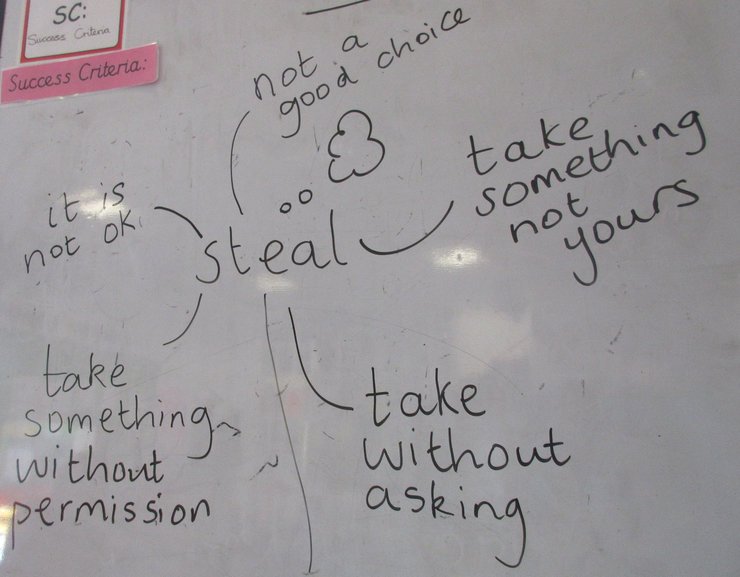 SC:
Success Criteria
Success Criteria:
not a
good choice
take
something
not
yours
it is
not ok.
steal
take
something
without
permission
take
without
asking